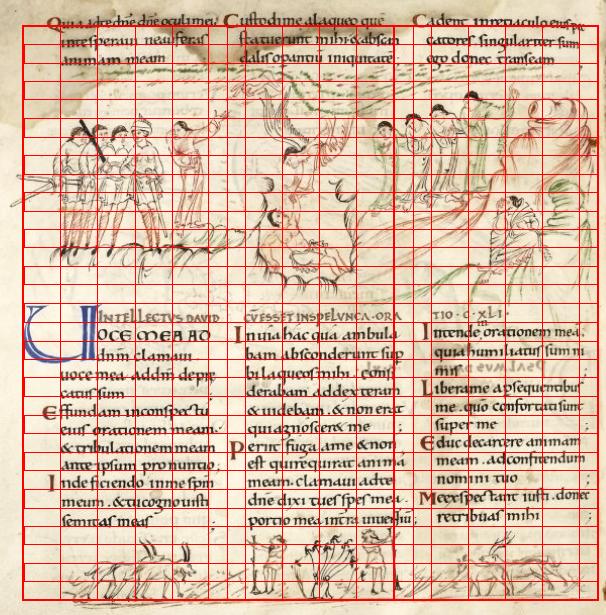 Quia adte dne dne oculi mei
inte speraui neauferas
animam meam
Custodi me alaqueo que
statuerunt mihi & abscan
dalis operantiu iniquitate;
Cadent in retiaculo eius pec
catores singulariter sum
ego donec transeam
INTELLECTUS DAVID
VOCE MEA AD
dnm clamaui
uoce mea addnm depre
catus sum
Effundam inconspectu
eius orationem meam
& tribulationem meam
ante ipsum pronuntio;
In deficiendo in me spm
meum & tu cognouisti
semitas meas;
CUESSET IN SPELUNCA ORA
In uia hac qua ambula
bam absconderunt sup
bi laqueos mihi consi
derabam addexteram
& uidebam & non erat
qui agnoscere me;
Periit fuga ame & non
est qui requirat anima
meam clamaui adte
dne dixi tu es spes mea
portio mea in tra uiuentiu;
TIO · C · XLI ·
Intende orationem mea
quia humiliatus sum ni
mis
Libera me apsequentibus
me quo confortati sunt
super me;
Educ decarcere animam
meam adconfitendum
nomini tuo;
Me expectant iusti donec
retribuas mihi;